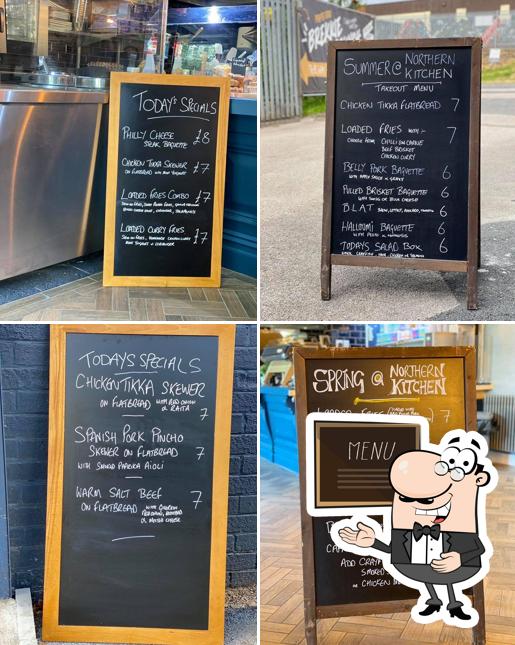 TODAY'S SPECIALS
PHILLY CHEESE £8
STEAK BAGUETTE
CHICKEN TIKKA SKEWER £7
ON FLATBREAD WITH MINT YOGHURT
LOADED FRIES COMBO £7
LOADED CURRY FRIES £7
SUMMER @ NORTHERN
KITCHEN
TAKEOUT MENU
CHICKEN TIKKA FLATBREAD 7
LOADED FRIES WITH :- 7
CHOOSE FROM CHILLI CON CARNE
BEEF BRISKET
CHICKEN CURRY
BELLY PORK BAGUETTE 6
WITH APPLE SAUCE & GRAVY
PULLED BRISKET BAGUETTE 6
BLAT BACON, LETTUCE, AVOCADO, TOMATO 6
HALLOUMI BAGUETTE 6
WITH PESTO
TODAYS SALAD BOX 6
TODAYS SPECIALS
CHICKEN TIKKA SKEWER
ON FLATBREAD WITH RED ONION
& RAITA 7
SPANISH PORK PINCHO
SKEWER ON FLATBREAD 7
WITH SMOKED PAPRIKA AIOLI
WARM SALT BEEF 7
ON FLATBREAD WITH GHERKIN
SPRING @ NORTHERN
KITCHEN
LOADED FRIES 7
MENU
ADD
SMOKED
OR CHICKEN